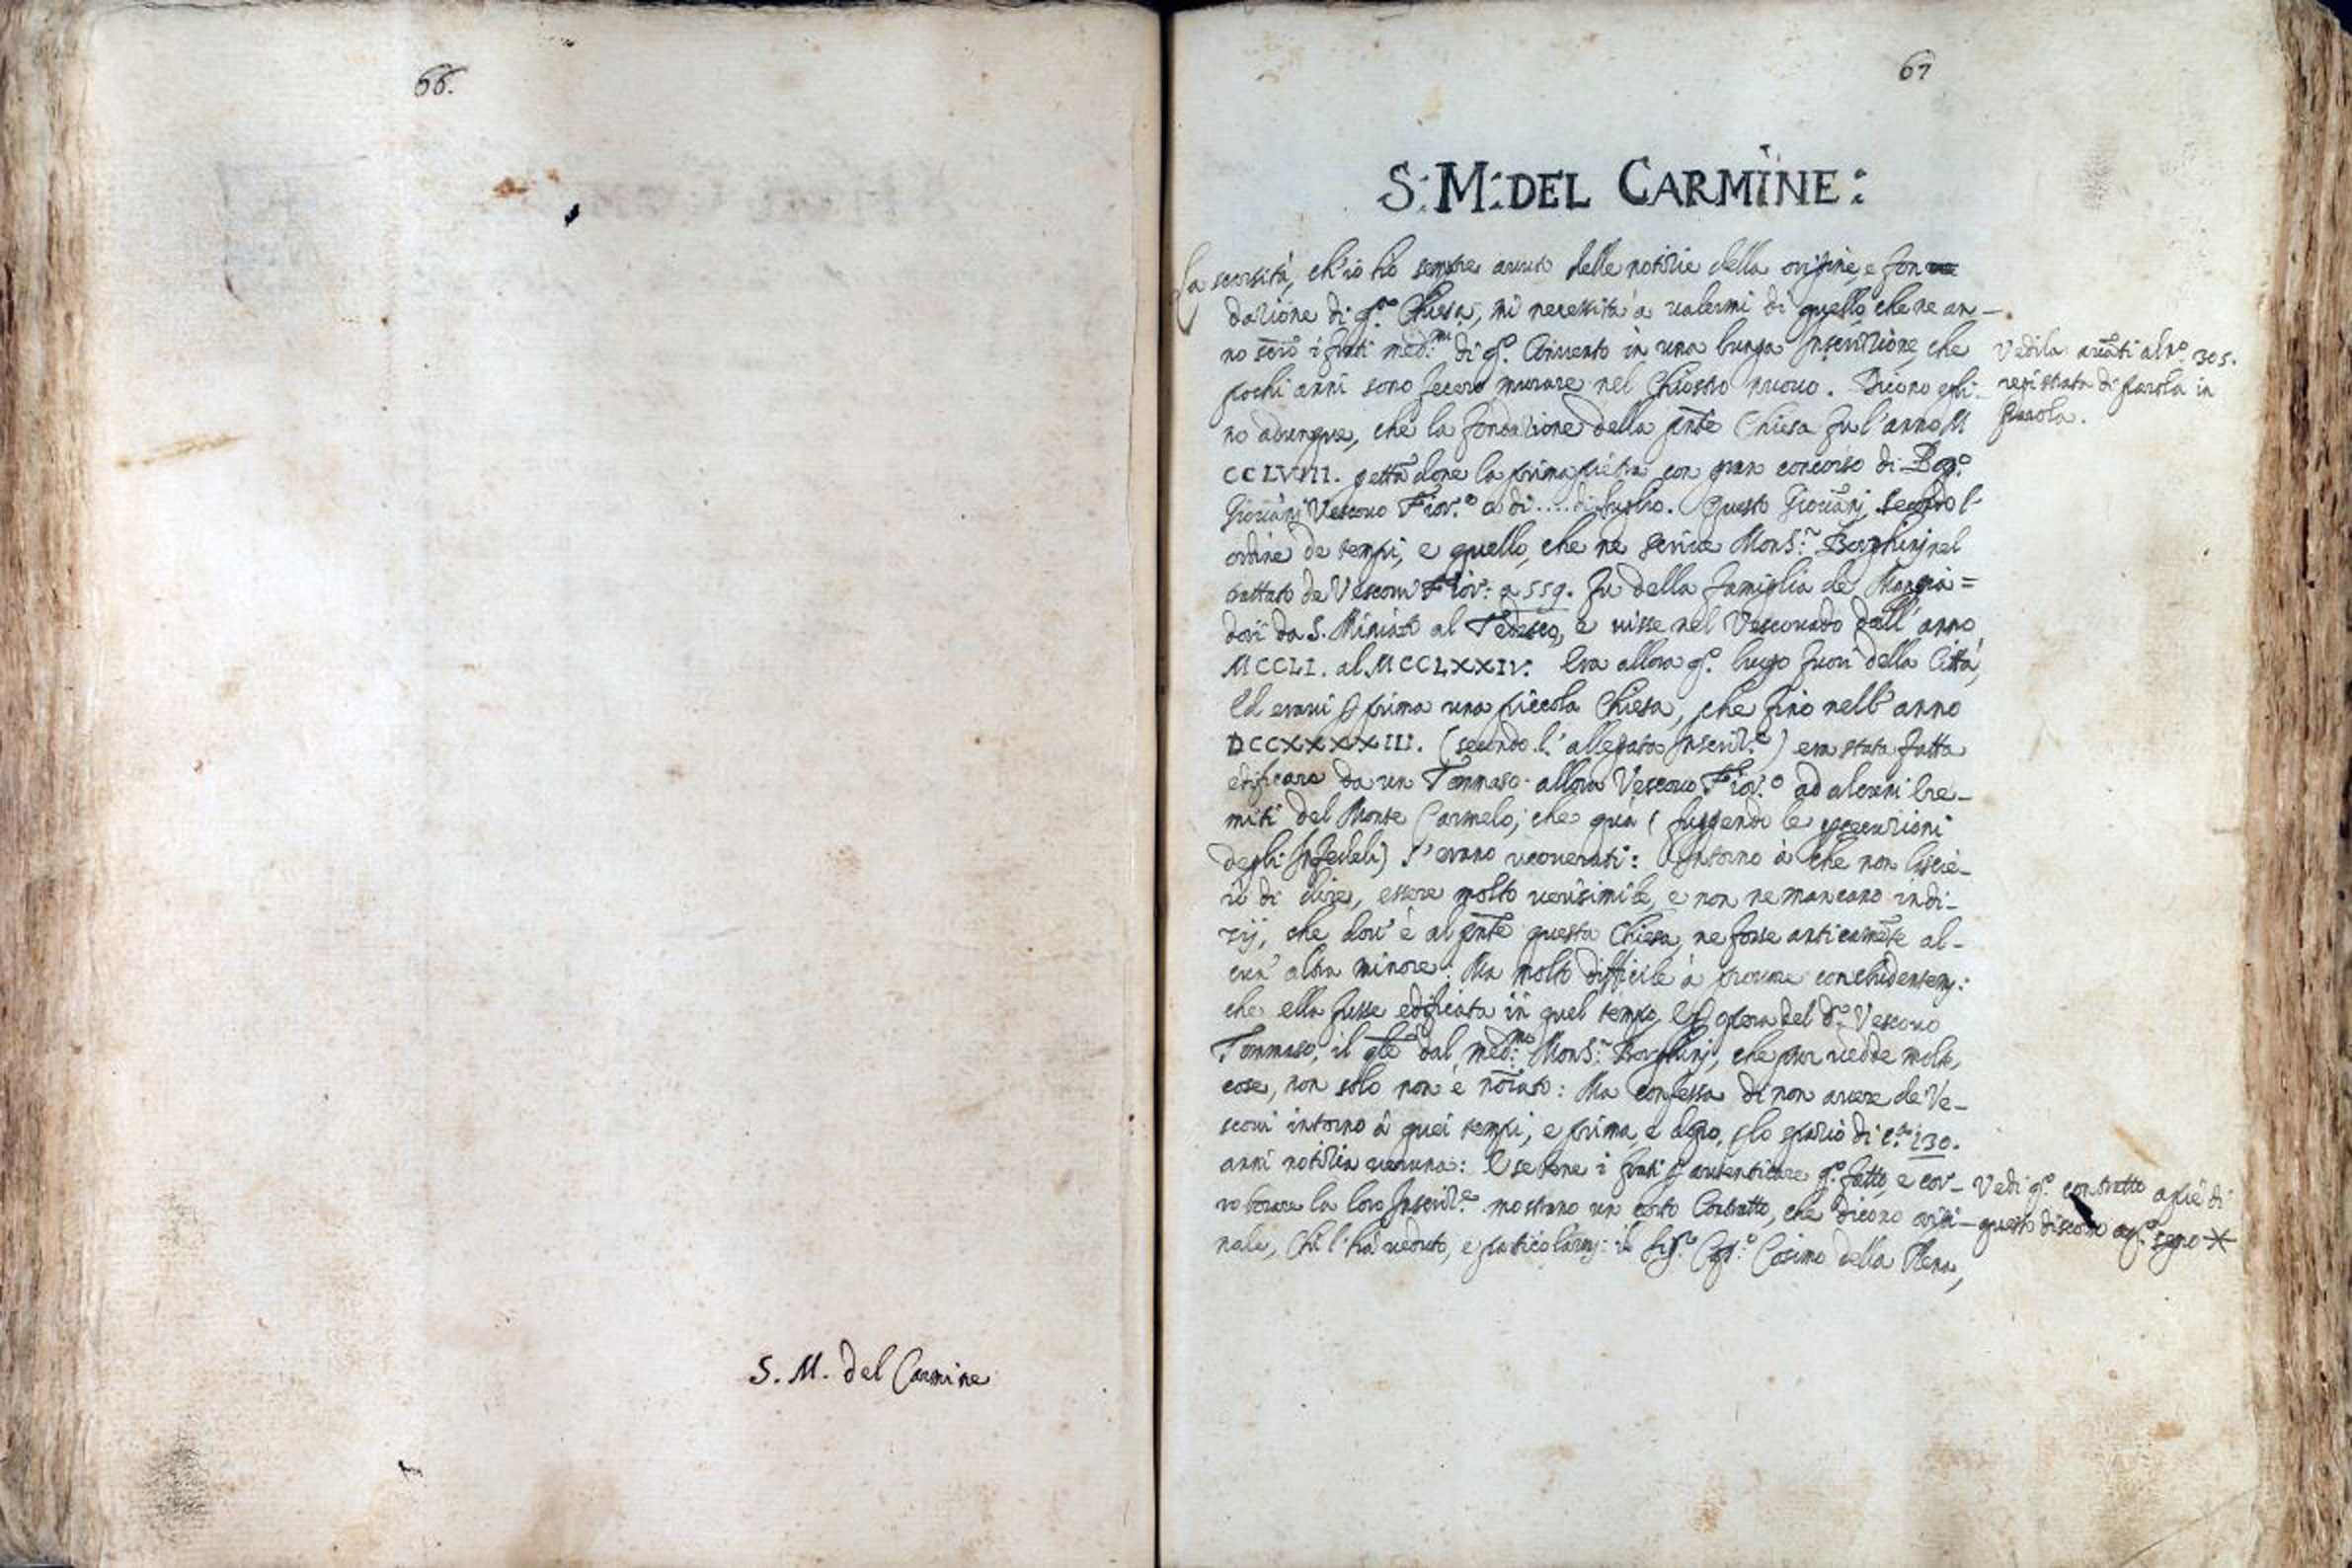 66.
S. M. del Carmine
67
S: M: DEL CARMINE:
La scarsità, ch'io hò sempre auuto delle notizie della origine, e fon
dazione di q.ª Chiesa, mi necessita à ualermi di quello che ne an-
no i frati med.mi di q.º Conuento in una lunga Inscrizione, che
pochi anni sono fecero murare nel Chiostro nuouo. Dicono
no adunque, che la fondazione della pñte Chiesa fu l'anno M
CCLVIII. la prima pietra con gran concorso di Pop.º
Giouãni Vescouo Fior.º a di .... di Luglio. Questo Giouãnj secõdo l'
ordine de tempi, e quello, che ne scriue Mons.r Borghinj nel
trattato de Vescoui Fior: a 559. fu della famiglia de Mangia=
dori da S. Miniato al Tedesco, e uisse nel Vescouado dall'anno
MCCLI. al MCCLXXIV: Era allora q.º luogo fuori della Città,
Ed eraui prima una piccola Chiesa, che fino nell'anno
DCCXXXXIII. (secondo l'allegata Inscriz.e) era stata fatta
edificare da un Tommaso allora Vescouo Fior.º ad alcuni Ere-
miti del Monte Carmelo, che quà (fuggendo le persecuzioni
degli Infedeli) s'erano ricouerati: Intorno à che non lascie-
rò di dire, essere molto uerisimile, e non ne mancano indi-
zij, che dou'è al pñte questa Chiesa, ne fosse anticamẽte al-
cun' altra minore: Ma molto difficile à prouare concludentem:
che ella fusse edificata in quel tempo, ed opera del d.º Vescouo
Tommaso, il qle dal med.mo Mons.r Borghinj, che pur uedde molte
cose, non solo non è nõiato: Ma confessa di non auere de Ve-
scoui intorno à quei tempi, e prima, e dopo, p lo spazio di c.ª 130.
anni notizia ueruna: E sebene i frati p autenticare q.º fatto, e cor-
roborare la loro Inscriz.e mostrano un certo Contratto, che dicono origi-
nale, Chi l'hà ueduto, e particolarm: il Sig.r Cosimo della Rena,
Vedila auãti al n.º 305.
registrata di parola in
parola.
Vedi q.º contratto a piè di
questo discorso a q.º segno *